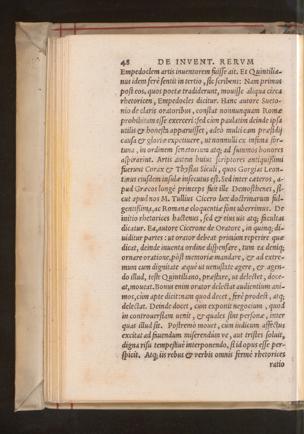 48 DE INVENT. RERVM
Empedoclem artis inuentorem fuisse ait. Et Quintilia-
nus idem ferè sentit in tertio, sic scribens: Nam primus
post eos, quos poetæ tradiderunt, mouisse aliqua circa
rhetoricen, Empedocles dicitur. Hanc autore Sueto-
nio de claris oratoribus, constat nonnunquam Romæ
prohibitam esse exerceri: sed cum paulatim deinde ipsa
utilis & honesta apparuisset, adeò multi eam præsidij
causa & gloriæ expetiuere, ut nonnulli ex infima for-
tuna, in ordinem senatorum atq; ad summos honores
aspirarint. Artis autem huius scriptores antiquissimi
fuerunt Corax & Thysias Siculi, quos Gorgias Leon-
tinus eiusdem insulæ insecutus est. Sed inter cæteros, a-
pud Græcos longè princeps fuit ille Demosthenes, si-
cut apud nos M. Tullius Cicero lux doctrinarum ful-
gentissima, ac Romanæ eloquentiæ fons uberrimus. De
initio rhetorices hactenus, sed & eius uis atq; facultas
dicatur. Ea, autore Cicerone de Oratore, in quinq; di-
uiditur partes: ut orator debeat primum reperire quæ
dicat, deinde inuenta ordine dispensare, tum ea deniq;
ornare oratione, pòst memoria mandare, & ad extre-
mum cum dignitate æque ut uenustate agere, & agen-
do illud, teste Quintiliano, præstare, ut delectet, doce-
at, moueat. Bonus enim orator delectat audientium ani-
mos, cum apte dicit: nam quod decet, ferè prodest, atq;
delectat. Deinde docet, cum exponit negocium, quod
in controuersiam uenit, & quales sint personæ, inter
quas illud sit. Postremò mouet, cum iudicum affectus
excitat ad fiuendum miserendum ue, aut tristes soluit,
digna risu tempestiuè interponendo, si id opus esse per-
spicit. Atq; iis rebus & uerbis omnis fermè rhetorices
ratio